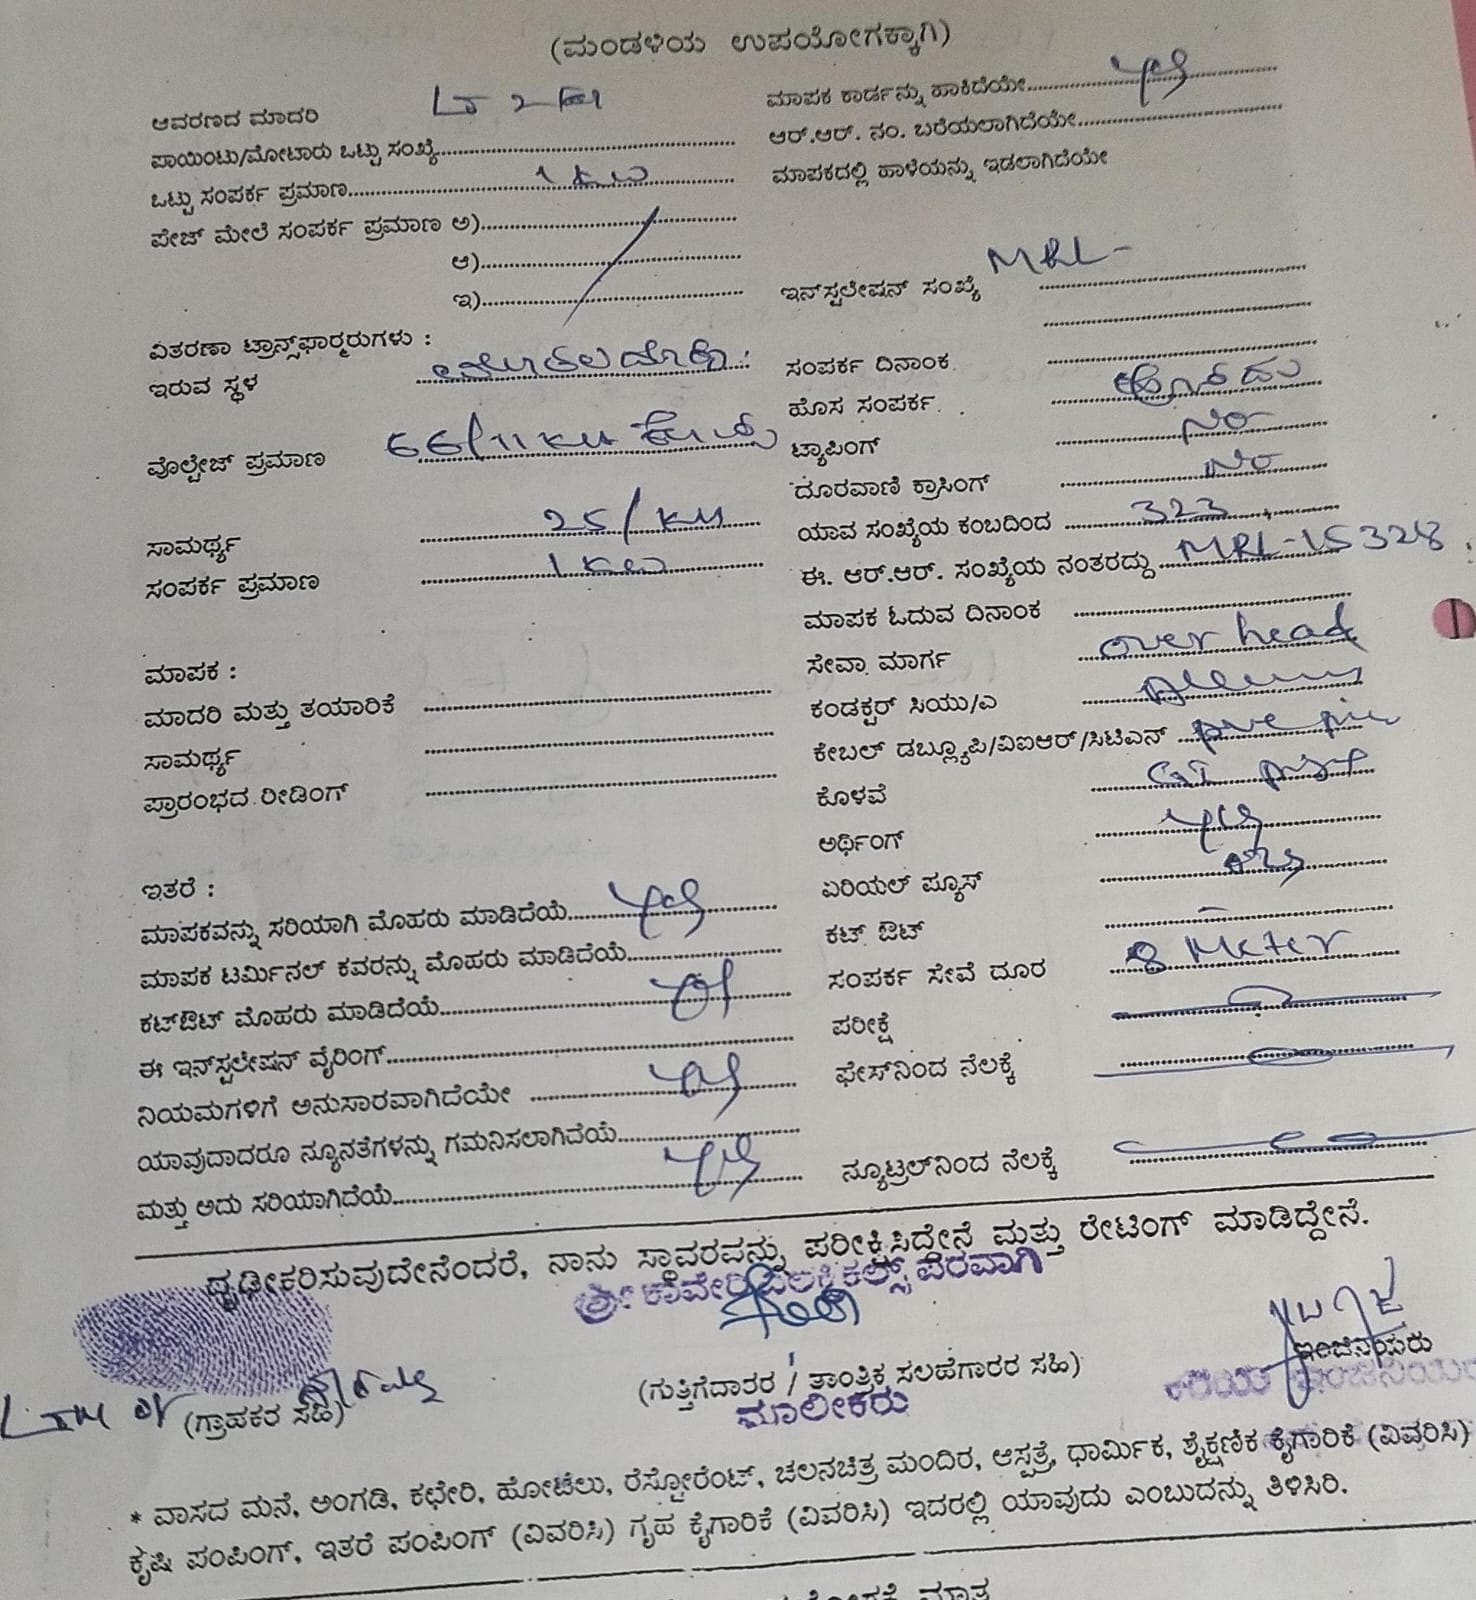 (ಮಂಡಳಿಯ ಉಪಯೋಗಕ್ಕಾಗಿ)
ಆವರಣದ ಮಾದರಿ LT 2
ಪಾಯಿಂಟು/ಮೋಟಾರು ಒಟ್ಟು ಸಂಖ್ಯೆ
ಒಟ್ಟು ಸಂಪರ್ಕ ಪ್ರಮಾಣ 1 KW
ಪೇಜ್ ಮೇಲೆ ಸಂಪರ್ಕ ಪ್ರಮಾಣ ಅ)
ಆ)
ಇ)
ವಿತರಣಾ ಟ್ರಾನ್ಸ್‌ಫಾರ್‍ಮರುಗಳು :
ಇರುವ ಸ್ಥಳ
ವೊಲ್ಟೇಜ್ ಪ್ರಮಾಣ 66/11 KV
ಸಾಮರ್ಥ್ಯ 25/
ಸಂಪರ್ಕ ಪ್ರಮಾಣ 1 KW
ಮಾಪಕ :
ಮಾದರಿ ಮತ್ತು ತಯಾರಿಕೆ
ಸಾಮರ್ಥ್ಯ
ಪ್ರಾರಂಭದ ರೀಡಿಂಗ್
ಇತರೆ :
ಮಾಪಕವನ್ನು ಸರಿಯಾಗಿ ಮೊಹರು ಮಾಡಿದೆಯೆ yes
ಮಾಪಕ ಟರ್ಮಿನಲ್ ಕವರನ್ನು ಮೊಹರು ಮಾಡಿದೆಯೆ
ಕಟ್‌ಔಟ್ ಮೊಹರು ಮಾಡಿದೆಯೆ
ಈ ಇನ್‌ಸ್ಟಲೇಷನ್ ವೈರಿಂಗ್
ನಿಯಮಗಳಿಗೆ ಅನುಸಾರವಾಗಿದೆಯೇ yes
ಯಾವುದಾದರೂ ನ್ಯೂನತೆಗಳನ್ನು ಗಮನಿಸಲಾಗಿದೆಯೆ
ಮತ್ತು ಅದು ಸರಿಯಾಗಿದೆಯೆ yes
ಮಾಪಕ ಕಾರ್ಡನ್ನು ಹಾಕಿದೆಯೇ yes
ಆರ್.ಆರ್. ನಂ. ಬರೆಯಲಾಗಿದೆಯೇ
ಮಾಪಕದಲ್ಲಿ ಹಾಳೆಯನ್ನು ಇಡಲಾಗಿದೆಯೇ
ಇನ್‌ಸ್ಟಲೇಷನ್ ಸಂಖ್ಯೆ MRL-
ಸಂಪರ್ಕ ದಿನಾಂಕ
ಹೊಸ ಸಂಪರ್ಕ
ಟ್ಯಾಪಿಂಗ್ No
ದೂರವಾಣಿ ಕ್ರಾಸಿಂಗ್ No
ಯಾವ ಸಂಖ್ಯೆಯ ಕಂಬದಿಂದ 323
ಈ. ಆರ್.ಆರ್. ಸಂಖ್ಯೆಯ ನಂತರದ್ದು MRL-15328
ಮಾಪಕ ಓದುವ ದಿನಾಂಕ
ಸೇವಾ ಮಾರ್ಗ over head
ಕಂಡಕ್ಟರ್ ಸಿಯು/ಎ
ಕೇಬಲ್ ಡಬ್ಲ್ಯೂಪಿ/ವಿಐಆರ್/ಸಿಟಿಎಸ್
ಕೊಳವೆ GI
ಅರ್ಥಿಂಗ್ yes
ಏರಿಯಲ್ ಪ್ಯೂಸ್
ಕಟ್ ಔಟ್ -
ಸಂಪರ್ಕ ಸೇವೆ ದೂರ 8 Meter
ಪರೀಕ್ಷೆ
ಫೇಸ್‌ನಿಂದ ನೆಲಕ್ಕೆ
ನ್ಯೂಟ್ರಲ್‌ನಿಂದ ನೆಲಕ್ಕೆ
ದೃಢೀಕರಿಸುವುದೇನೆಂದರೆ, ನಾನು ಸ್ಥಾವರವನ್ನು ಪರೀಕ್ಷಿಸಿದ್ದೇನೆ ಮತ್ತು ರೇಟಿಂಗ್ ಮಾಡಿದ್ದೇನೆ.
ಶ್ರೀ ಕಾವೇರಿ ಎಲೆಕ್ಟ್ರಿಕಲ್ಸ್ ಪರವಾಗಿ
LTM of
(ಗ್ರಾಹಕರ ಸಹಿ)
(ಗುತ್ತಿಗೆದಾರರ / ತಾಂತ್ರಿಕ ಸಲಹೆಗಾರರ ಸಹಿ)
ಮಾಲೀಕರು
ಇಂಜಿನಿಯರು
ಕಿರಿಯ ಇಂಜಿನಿಯರ್
* ವಾಸದ ಮನೆ, ಅಂಗಡಿ, ಕಛೇರಿ, ಹೋಟೆಲು, ರೆಸ್ಟೋರೆಂಟ್, ಚಲನಚಿತ್ರ ಮಂದಿರ, ಆಸ್ಪತ್ರೆ, ಧಾರ್ಮಿಕ, ಶೈಕ್ಷಣಿಕ ಕೈಗಾರಿಕೆ (ವಿವರಿಸಿ)
ಕೃಷಿ ಪಂಪಿಂಗ್, ಇತರೆ ಪಂಪಿಂಗ್ (ವಿವರಿಸಿ) ಗೃಹ ಕೈಗಾರಿಕೆ (ವಿವರಿಸಿ) ಇದರಲ್ಲಿ ಯಾವುದು ಎಂಬುದನ್ನು ತಿಳಿಸಿರಿ.